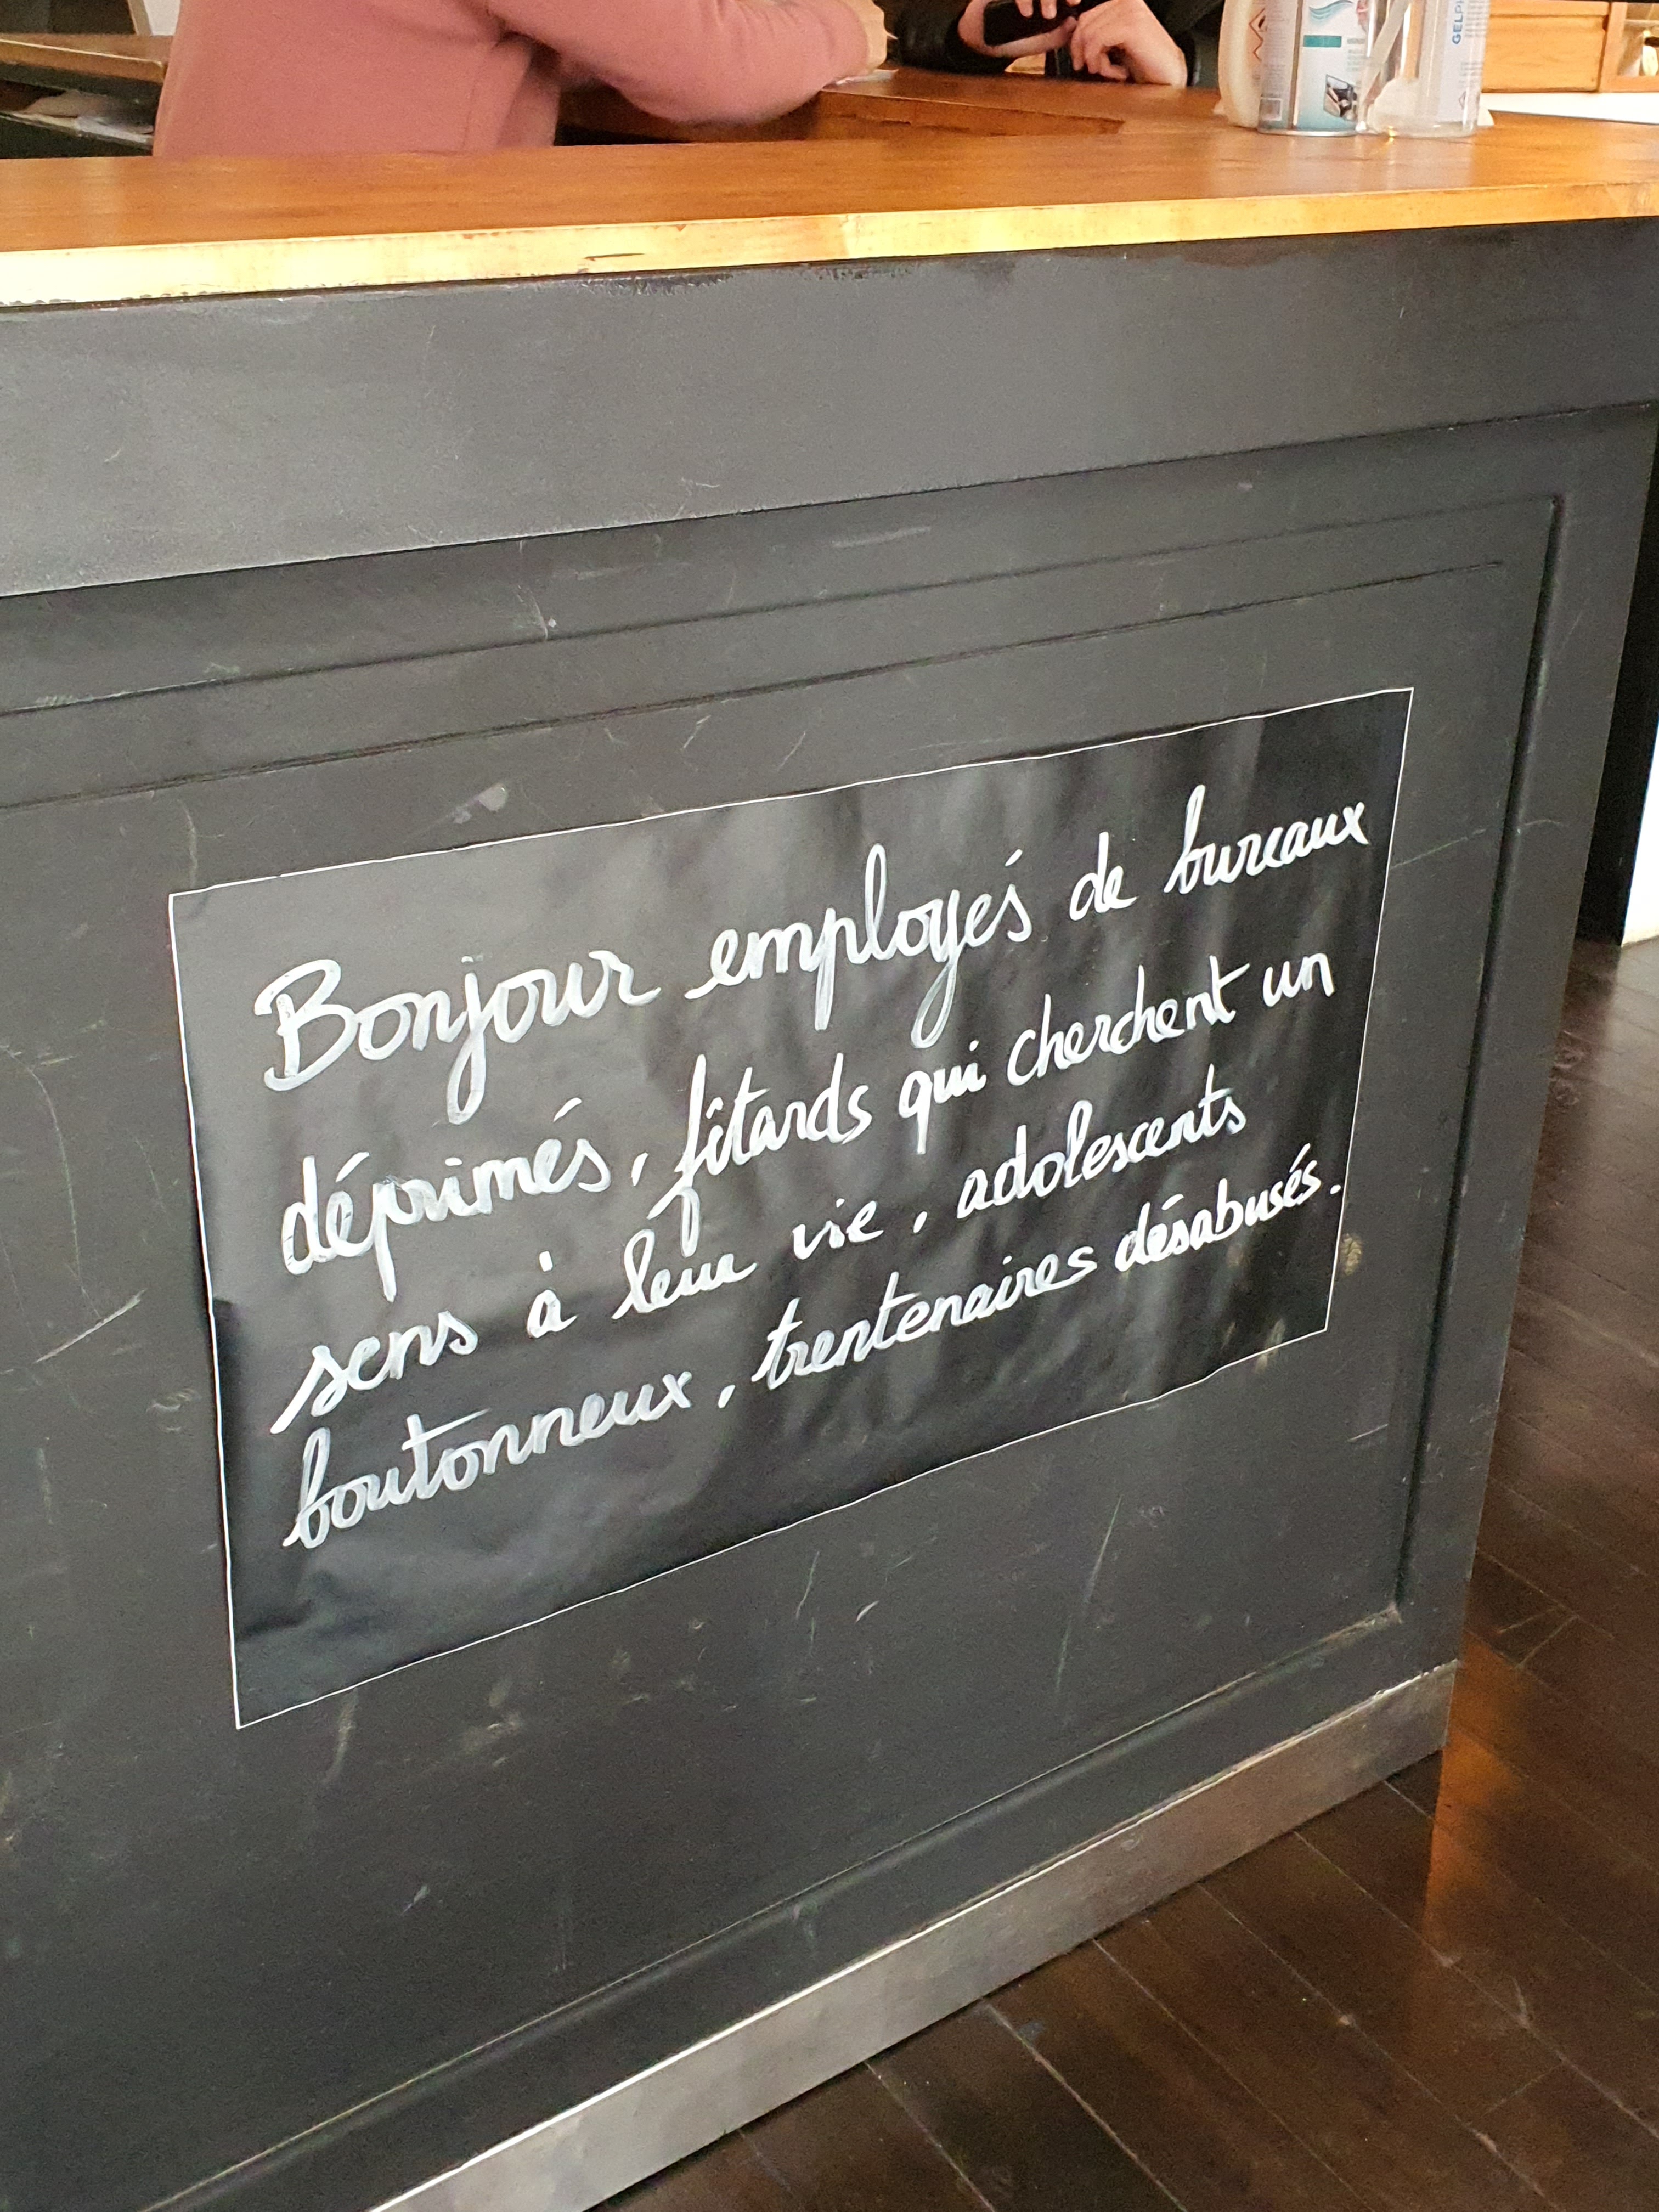 GELPI
Bonjour employés de bureaux
déprimés, fêtards qui cherchent un
sens à leur vie, adolescents
boutonneux, trentenaires désabusés.